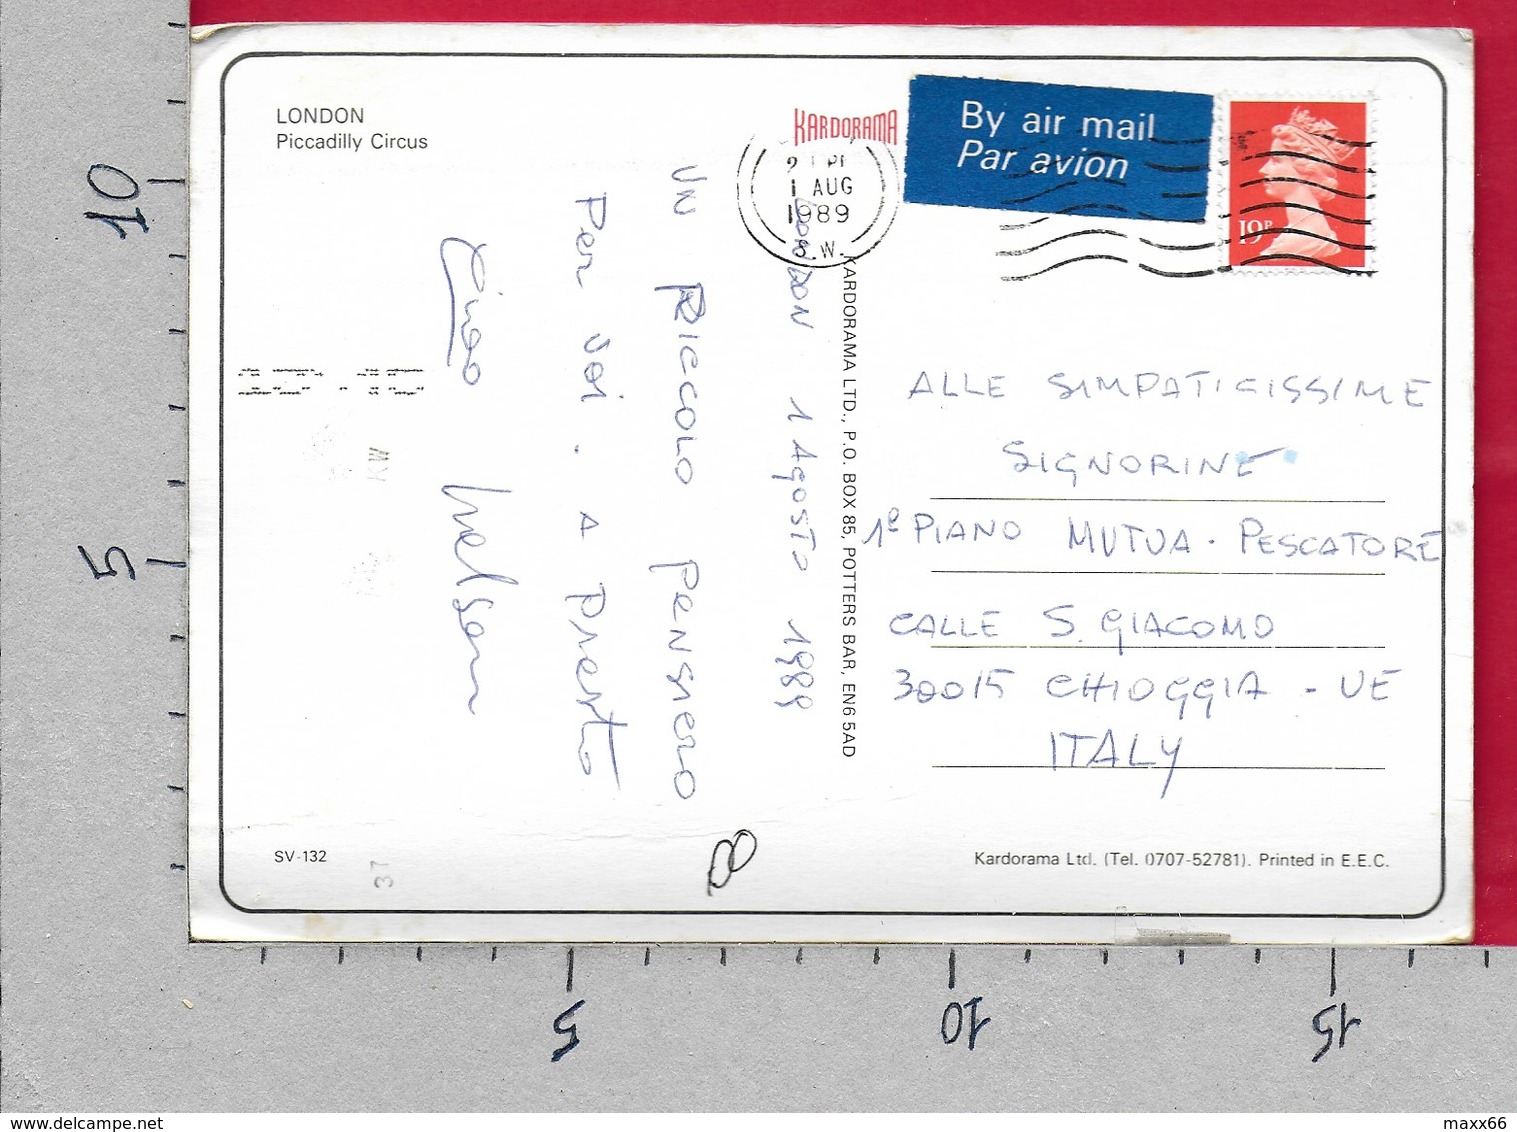 LONDON
Piccadilly Circus
KARDORAMA
1 AUG
1989
S.W.
By air mail
Par avion
19P
LONDON 1 AGOSTO 1989
UN PICCOLO PENSIERO
PER VOI. A PRESTO
Ciao
KARDORAMA LTD., P.O. BOX 85, POTTERS BAR, EN6 5AD
ALLE SIMPATICISSIME
SIGNORINE
1º PIANO MUTUA. PESCATORE
CALLE S. GIACOMO
30015 CHIOGGIA - VE
ITALY
KW
37
SV-132
Kardorama Ltd. (Tel. 0707-52781). Printed in E.E.C.
10
5
5
10
15
www.delcampe.net
maxx66